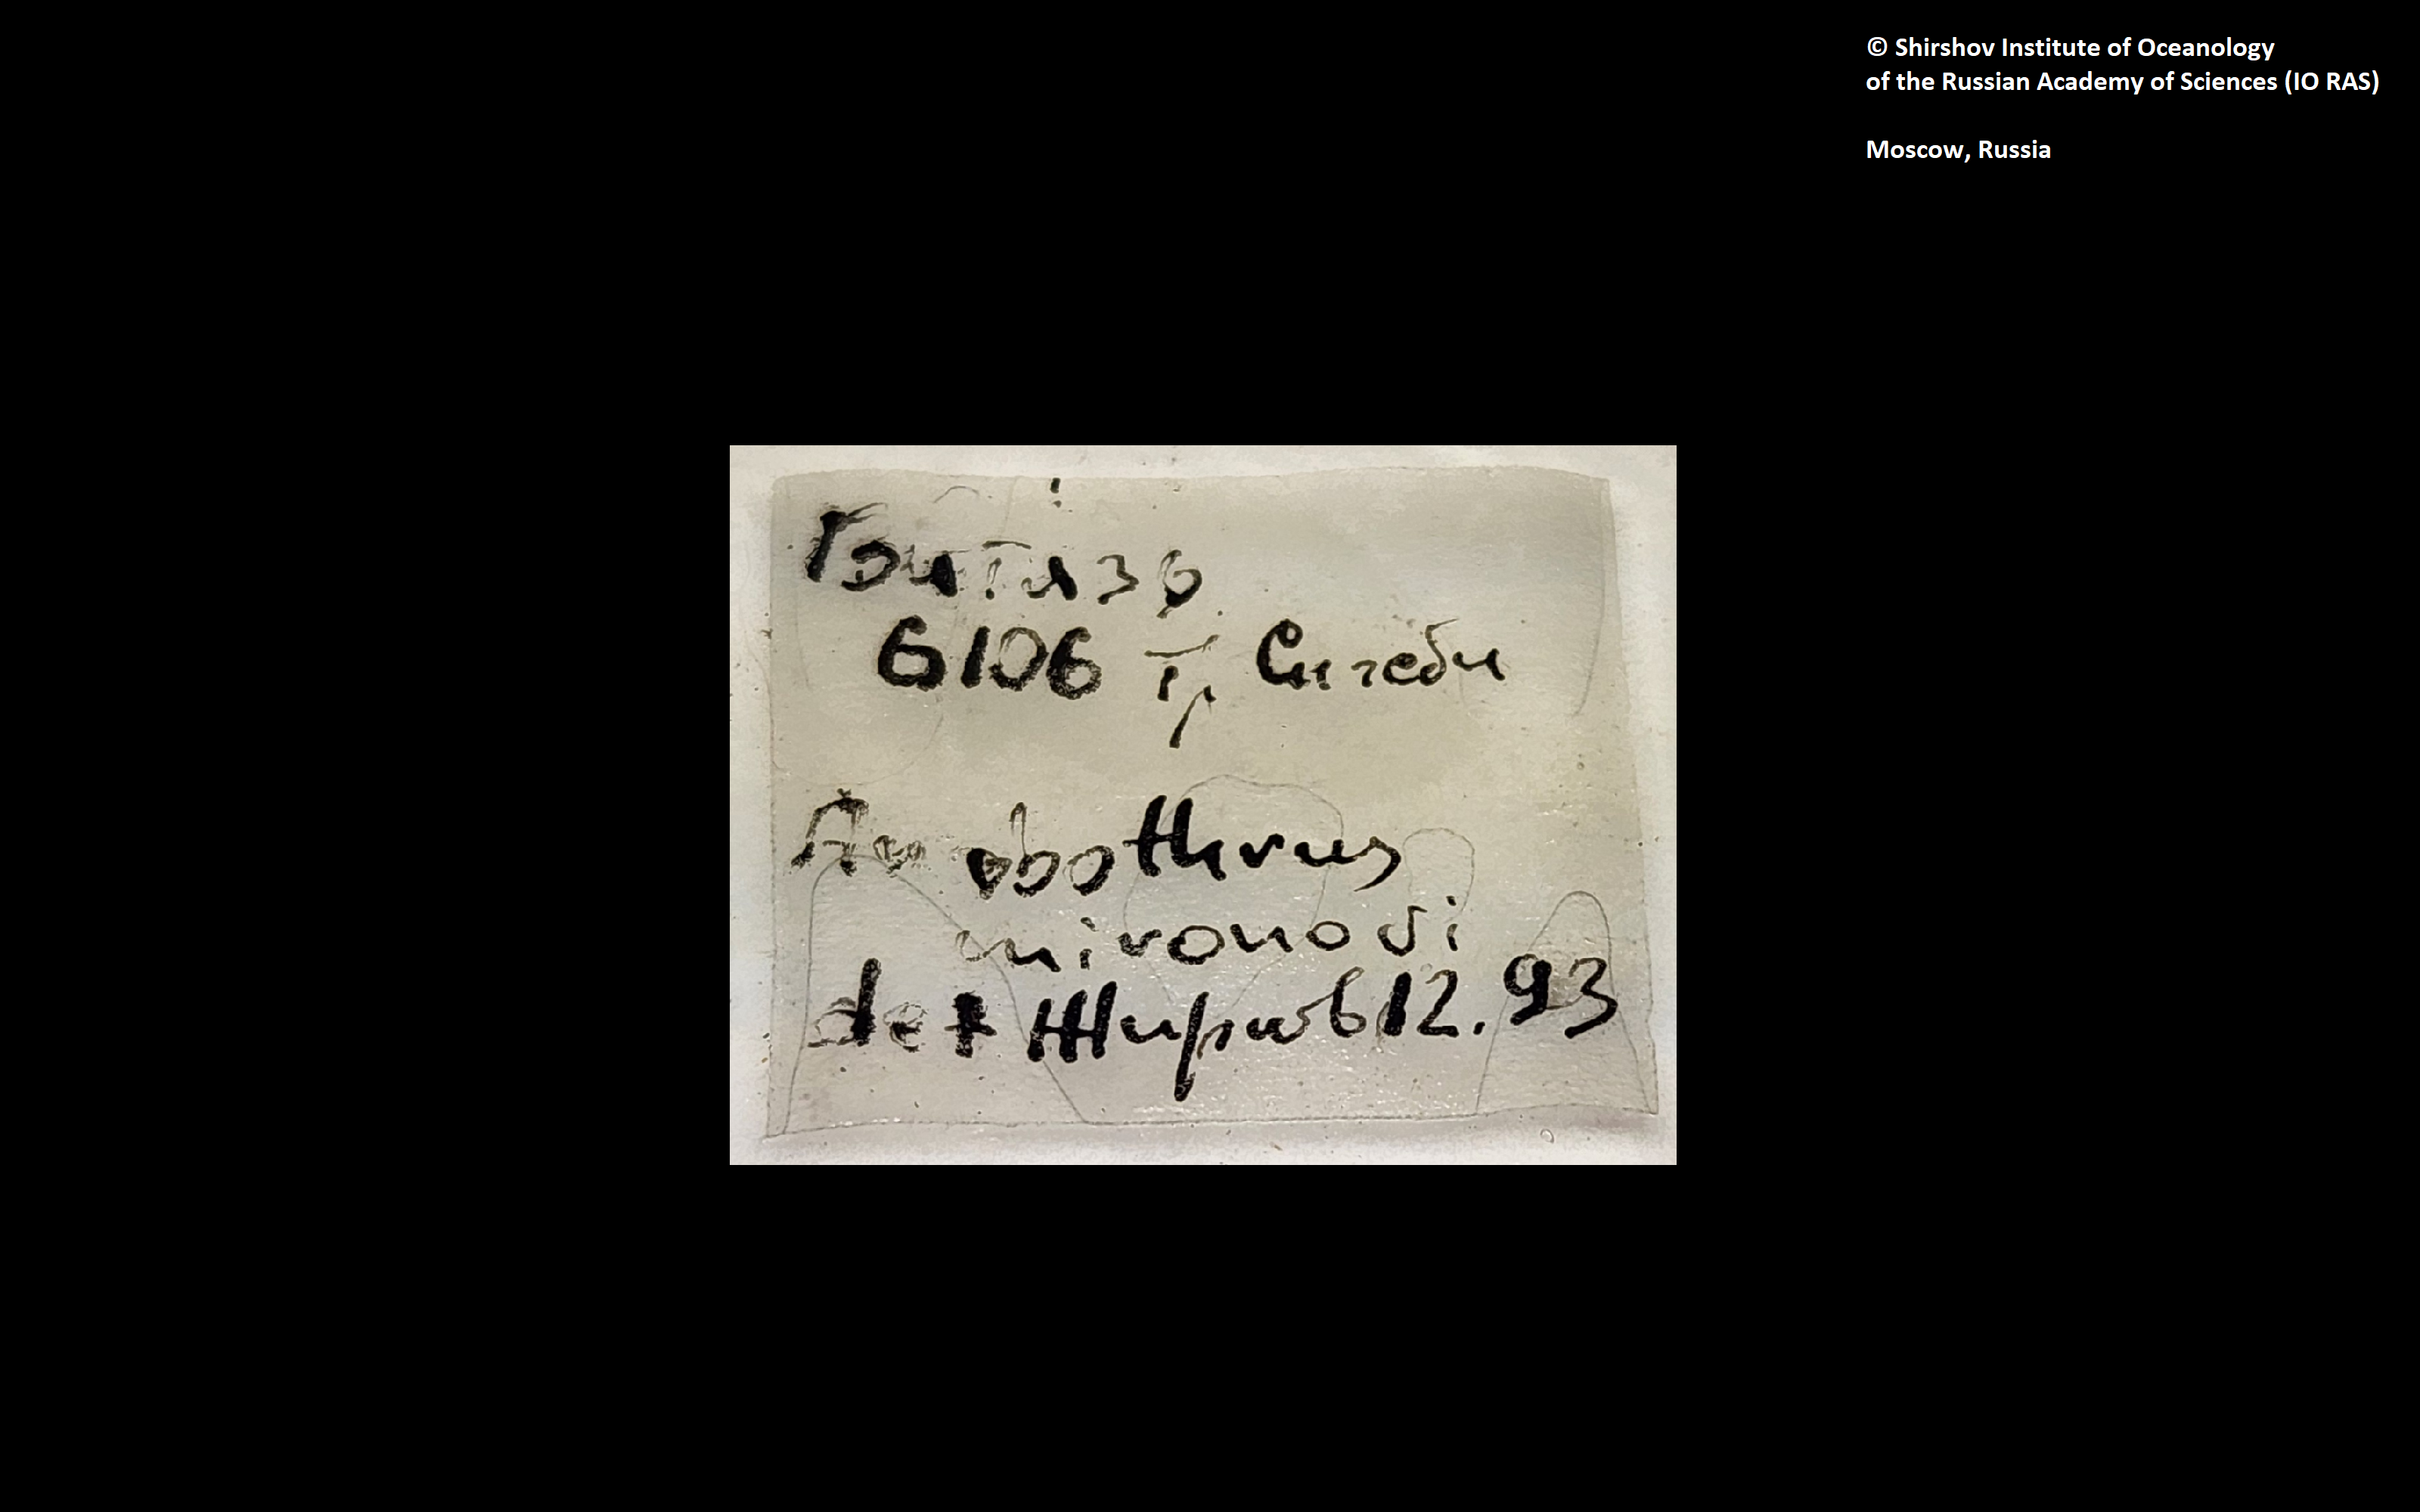 © Shirshov Institute of Oceanology
of the Russian Academy of Sciences (IO RAS)
Moscow, Russia
Витязь
6106 Тр Сигсби
mironovi
det Жирков 12.93